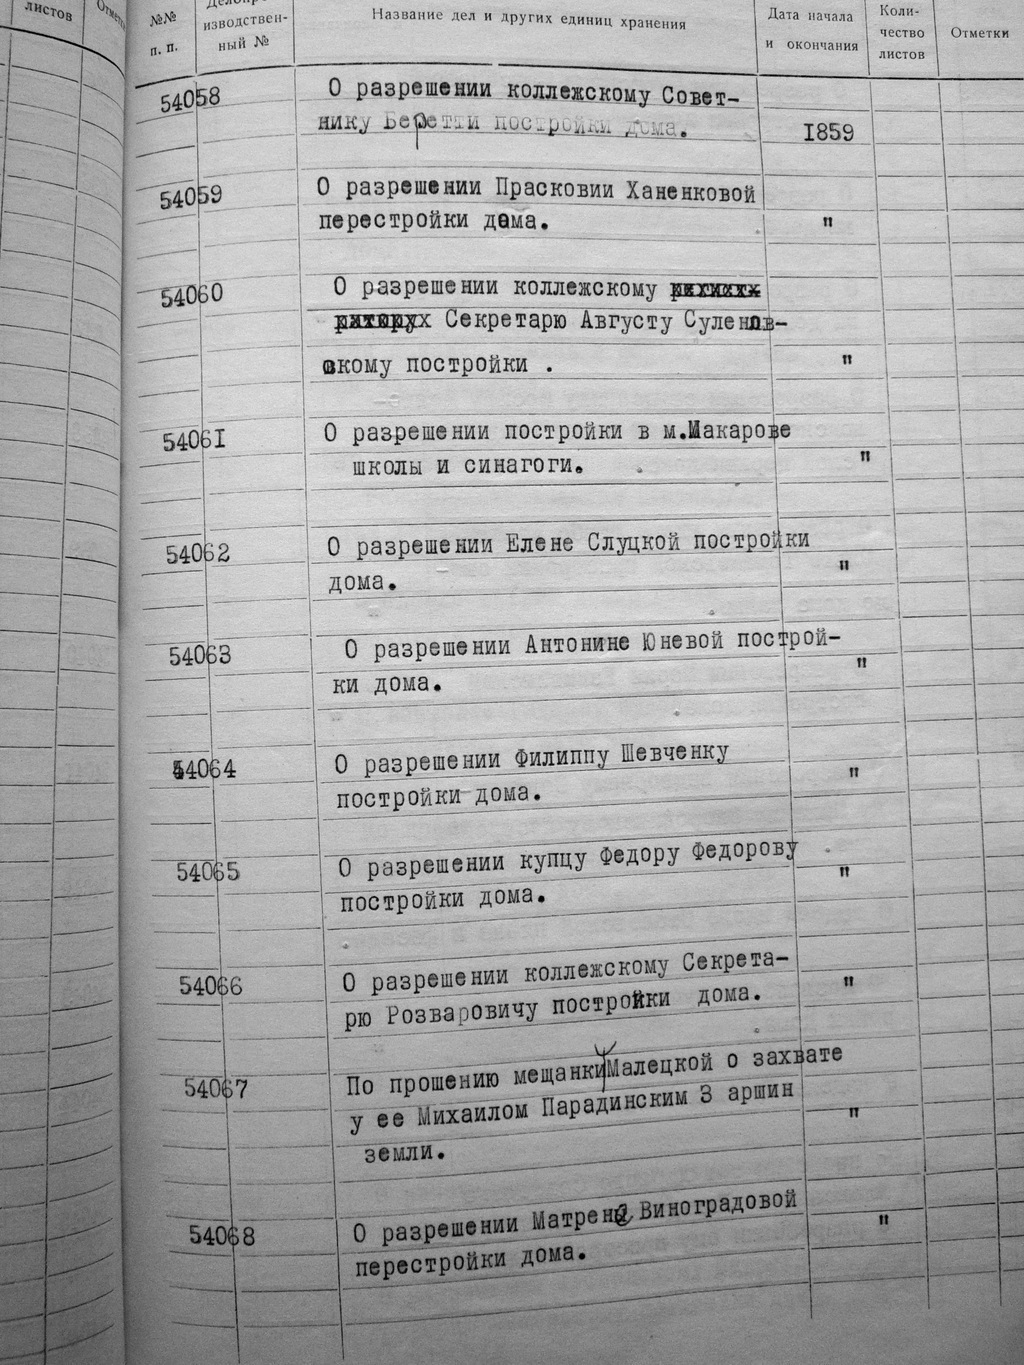 листов
Отметки
№№
п. п.
изводствен-
ный №
Название дел и других единиц хранения
Дата начала
и окончания
Коли-
чество
листов
Отметки
54058
О разрешении коллежскому Совет-
нику Беретти постройки дома.
1859
54059
О разрешении Прасковии Ханенковой
перестройки дома.
"
54060
О разрешении коллежскому
Секретарю Августу Суленов-
скому постройки .
"
54061
О разрешении постройки в м.Макарове
школы и синагоги.
"
54062
О разрешении Елене Слуцкой постройки
дома.
"
54063
О разрешении Антонине Юневой построй-
ки дома.
"
54064
О разрешении Филиппу Шевченку
постройки дома.
"
54065
О разрешении купцу Федору Федорову
постройки дома.
"
54066
О разрешении коллежскому Секрета-
рю Розваровичу постройки дома.
"
54067
По прошению мещанки Малецкой о захвате
у ее Михаилом Парадинским 3 аршин
земли.
"
54068
О разрешении Матрене Виноградовой
перестройки дома.
"